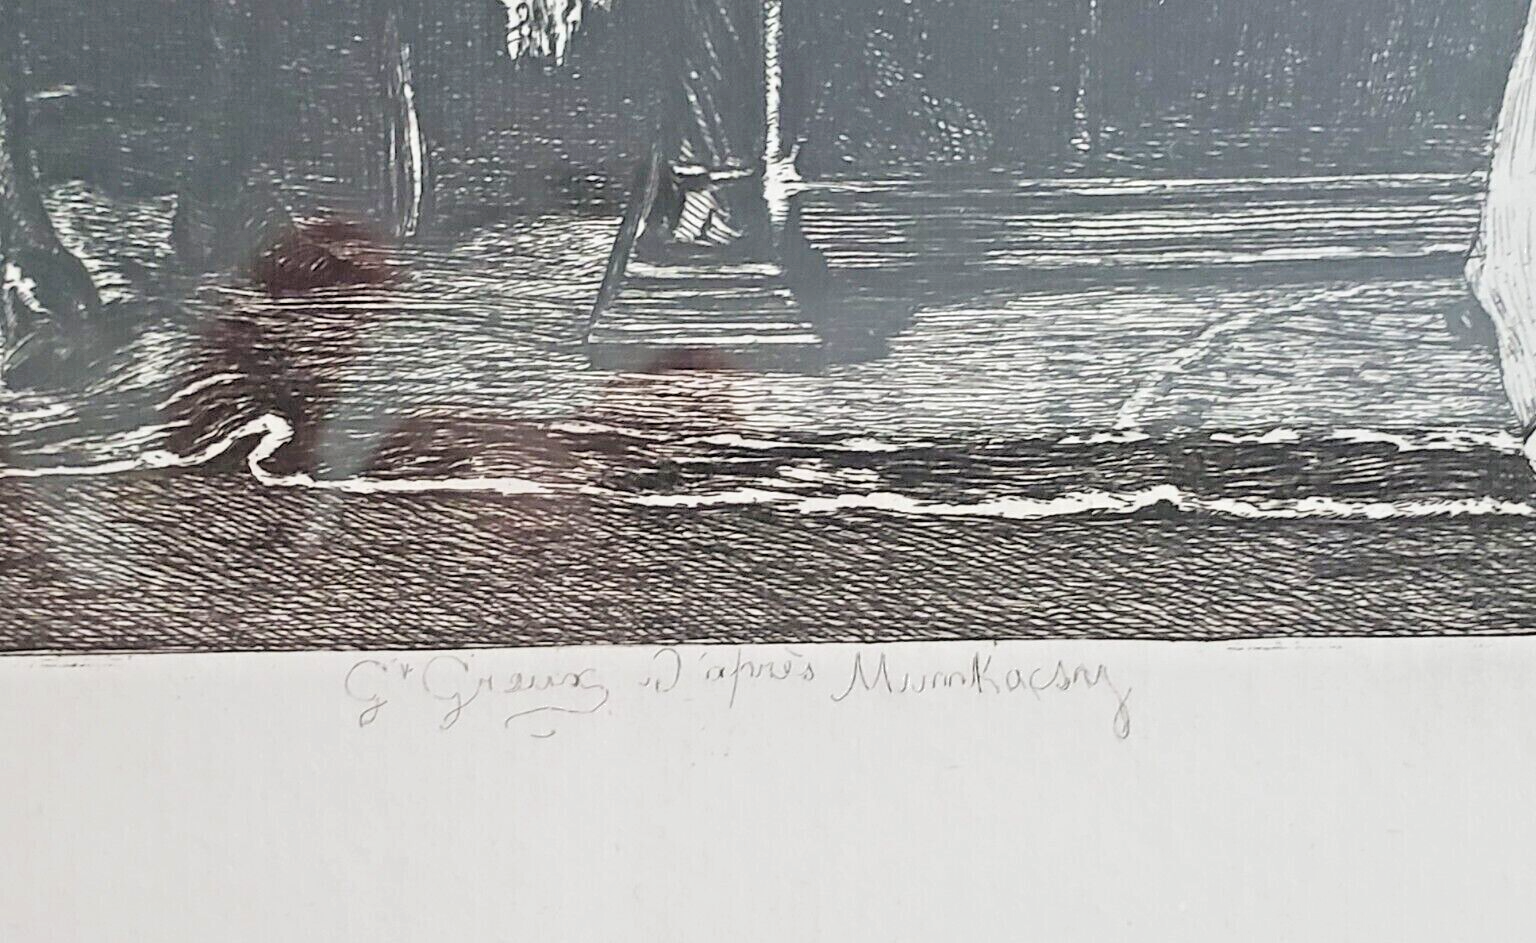 G Greux d'après Munkacsy